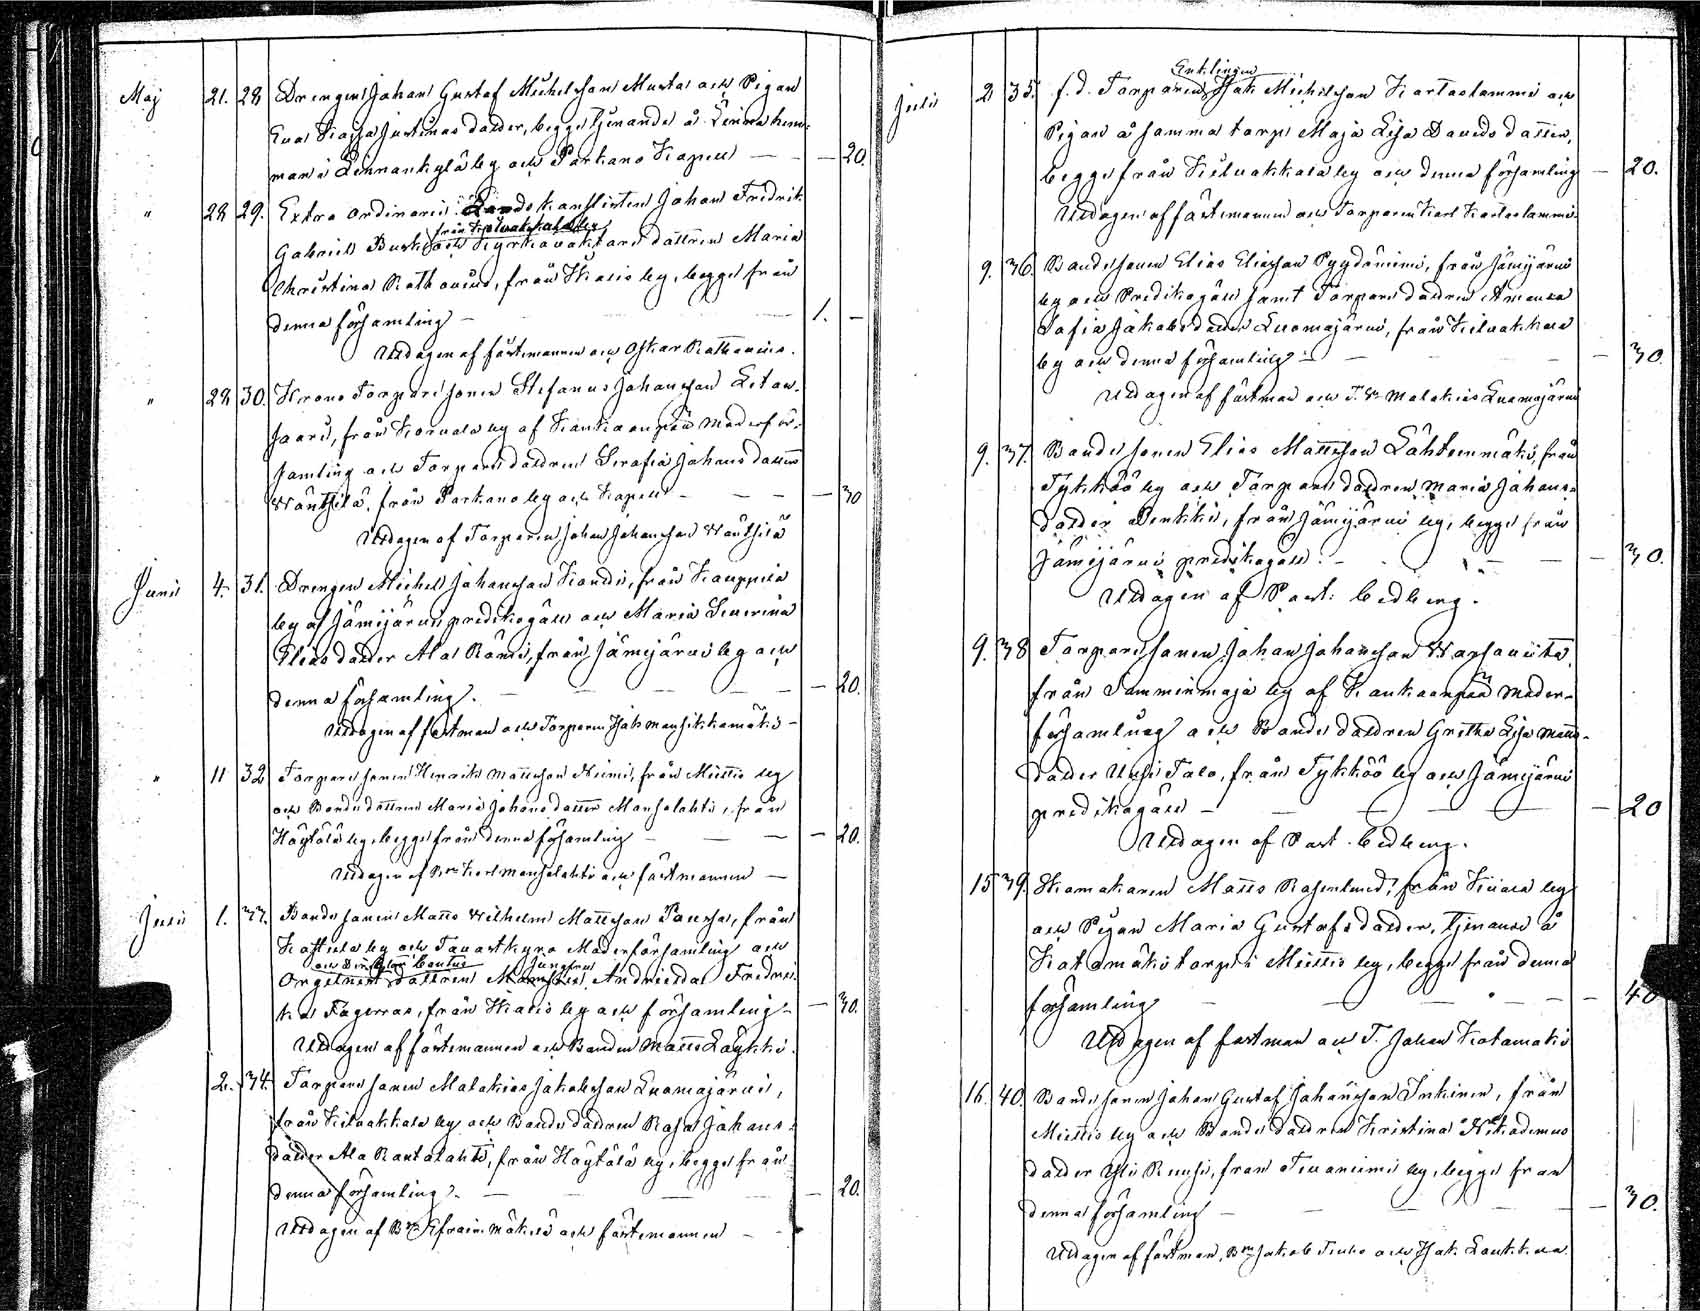 Maj 21. 28 Drengen Johan Gustaf Michelsson Musta och Pigan
Eva Kajsa Justinas dotter, begge tjenande å Linna hem-
man i Linnankylä by och Parkano Kapell — — 20.
" 28 29. Extra ordinarie Landskanslisten Johan Fredrik
från Kilvakkala by
Gabriel Busk och Kyrkovaktare dottren Maria
Christina Rathovius, från Ikalis by, begge från
denna församling — 1. —
Uttagen af fästemannen och Oskar Rathovius.
" 28 30. Krono Torpare sonen Stefanus Johansson
saari, från by af Kankaanpää Moderför-
samling och Torpare dottren Serafia Johans dotter
från Parkano by och Kapell — — — 30
Uttagen af Torparen Johan Johansson
Junii 4. 31. Drengen Michel Johansson från Kauppila
by af Jämijärvi predikogäll och Maria Severina
Elias dotter Ala Rämi, från Jämijärvi by och
denna församling. — — — 20.
Uttagen af fästman och Torparen Isak Mansikkamäki —
" 11 32 Torpare sonen Henrik Mattsson Niemi, från Miettis by
och Bonde dottren Maria Johans dotter Mansolahti, från
Höytölä by, begge från denna församling — — 20.
Uttagen af Bn Karl Mansolahti och fästmannen —
Julii 1. 33. Bonde sonen Matts Wilhelm Mattsson från
by och Tavastkyro Moderförsamling och
Jungfrun
Orgelnist dottren Andriedta Fredri-
ka Fagerroos, från Ikalis by och församling — 30.
Uttagen af fästemannen och Bonden Matts Läykki.
2. 34. Torpare sonen Malakias Jakobsson Luomajärvi,
från Kilvakkala by och Bonde dottren Rosa Johans
dotter Ala Rantalahti, från Höytölä by, begge från
denna församling. — — — 20.
Uttagen af Bn Efraim Mäkelä och fästemannen —
Enklingen
Julii 2 35. f.d. Torparen Isak Michelsson Kartaslammi och
Pigan å samma torp Maja Lisa Davids dotter,
begge från Kilvakkala by och denna församling — 20.
Uttagen af fästemannen och Torparen Karl Kartaslammi.
9. 36. Bonde sonen Elias Eliasson Pyydäniemi, från Jämijärvi
by och Predikogäll samt Torpare dottren Amanda
Sofia Jakobs dotter Luomajärvi, från Kilvakkala
by och denna församling — — 30.
Uttagen af fästman och T. Sn Malakias Luomajärvi
9. 37. Bonde sonen Elias Mattsson Lähteenmäki, från
Tykköö by och Torpare dottren Maria Johans-
dotter Penkki, från Jämijärvi by, begge från
Jämijärvi predikogäll. — — 30.
Uttagen af Past: Cedberg.
9. 38 Torpare sonen Johan Johansson
från Samminmaja by af Kankaanpää Moder-
församling och Bonde dottren Gretha Lisa Matts-
dotter Uusi Talo, från Tykköö by och Jämijärvi
predikogäll — — — 20
Uttagen af Past. Cedberg.
15 39. Skomakaren Matts Rosenlund, från by
och Pigan Maria Gustafs dotter, tjenande å
Katamäki torp i Miettis by, begge från denna
församling — — — 40
Uttagen af fästman och T. Johan Katamäki
16. 40. Bonde sonen Johan Gustaf Johansson Inkinen, från
Miettis by och Bonde dottren Kristina Nikodemus
dotter Yli Ruusi, från by, begge från
denna församling — — — 30.
Uttagen af fästman, Bn Jakob och Isak